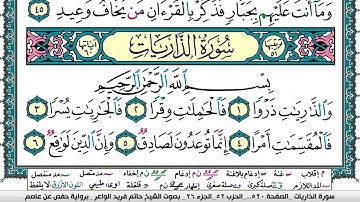 وَمَآ أَنتَ عَلَيْهِم بِجَبَّارٍ فَذَكِّرْ بِالْقُرْءَانِ مَن يَخَافُ وَعِيدِ ٤٥
ترتيبها ٥١ سُورَةُ الذَّارِيَات آياتها ٦٠
بِسْمِ اللَّهِ الرَّحْمَٰنِ الرَّحِيمِ
وَالذَّارِيَٰتِ ذَرْوًا ١ فَالْحَٰمِلَٰتِ وِقْرًا ٢ فَالْجَٰرِيَٰتِ يُسْرًا ٣
فَالْمُقَسِّمَٰتِ أَمْرًا ٤ إِنَّمَا تُوعَدُونَ لَصَادِقٌ ٥ وَإِنَّ الدِّينَ لَوَٰقِعٌ ٦
سورة الذاريات - ص ٥٢٠ - الحزب ٥٢ - الجزء ٢٦ - بصوت الشيخ حاتم فريد الواعر - برواية حفص عن عاصم